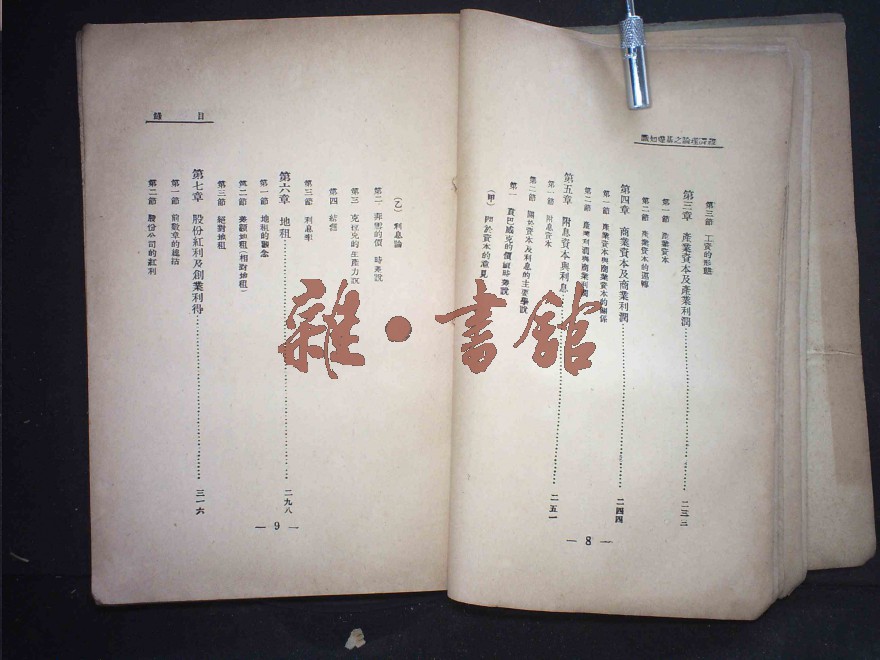 經濟理論之基礎知識
第三節 工資的形態
第三章 產業資本及產業利潤 二三三
第一節 產業資本
第二節 產業資本的運轉
第四章 商業資本及商業利潤 二四四
第一節 產業資本與商業資本的關係
第二節 產業利潤與商業利潤
第五章 附息資本與利息 二五一
第一節 附息資本
第二節 關於資本及利息的主要學說
第一 貢巴威克的價值時差說
(甲) 關於資本的意見
— 8 —
目錄
(乙) 利息論
第二 時差說
第三 克拉克的生產力說
第四 結論
第三節 利息率
第六章 地租 二九八
第一節 地租的觀念
第二節 差額地租(相對地租)
第三節 絕對地租
第七章 股份紅利及創業利得 三一六
第一節 前數章的總結
第二節 股份公司的紅利
— 9 —
雜·書館